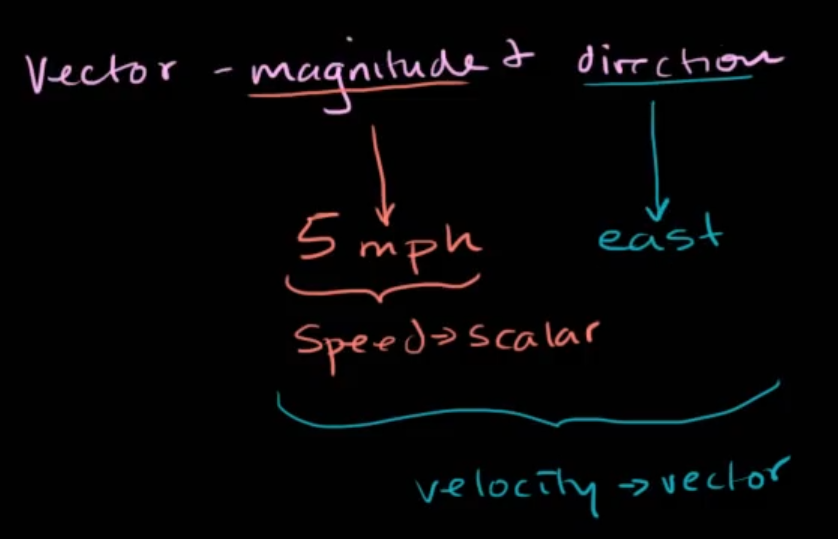 Vector - magnitude & direction
5 mph east
Speed => scalar
velocity -> vector